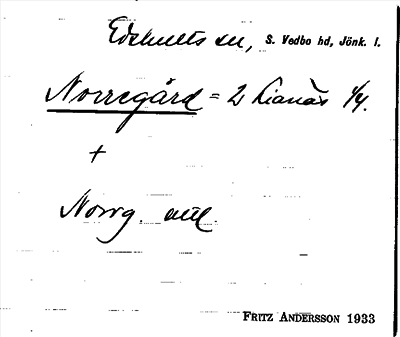 Edshults sn, S. Vedbo hd, Jönk. l.
Norregård = 2 Lianäs 1/4.
+
Norrg. utt.
FRITZ ANDERSSON 1933